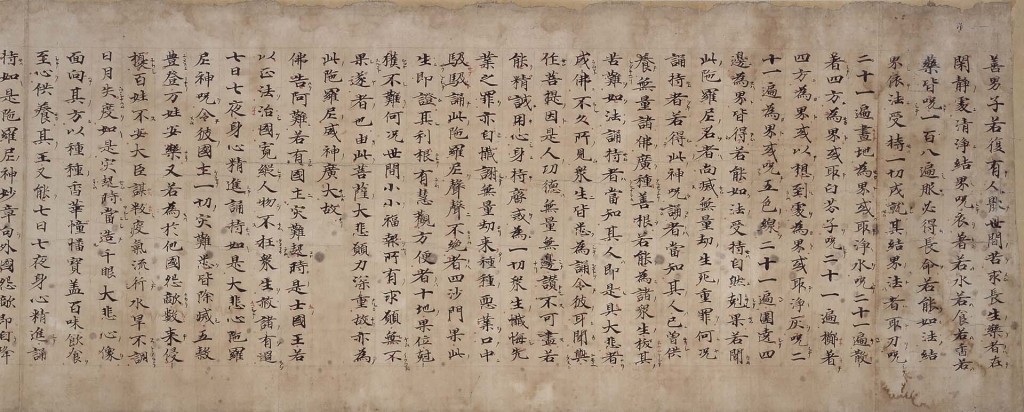 善男子若復有人於世間若求長生樂者在
閑静處清浄結界呪衣著若水若食若香若
藥皆呪一百八遍服必得長命若能如法結
界依法受持一切成就其結界法者取刀呪
二十一遍畫地為界或取浄水呪二十一遍散
著四方為界或取白芥子呪二十一遍擲著
四方為界或以想到處為界或取浄灰呪二
十一遍為界或呪五色線二十一遍圍遶四
邊為界皆得若能如法受持自然剋果若聞
此陁羅尼名者尚滅無量劫生死重罪何况
誦持者若得此神呪誦者當知其人已曾供
養無量諸佛廣種善根若能為諸衆生拔其
苦難如法誦持者當知其人即是具大悲者
成佛不久所見衆生皆悉為誦令彼耳聞與
任菩提因是人功德無量無邊讚不可盡若
能精誠用心身持齋或為一切衆生懺悔先
業之罪亦自懺謝無量劫来種種惡業口中
馺馺誦此陁羅尼聲聲不絶者四沙門果此
生即證其利根有慧觀方便者十地果位剋
獲不難何况世間小小福報所有求願無不
果遂者也由此菩薩大悲願力深重故亦為
此陁羅尼威神廣大故
佛告阿難若有國王灾難起時是土國王若
以正法治國寛縱人物不枉衆生赦諸有過
七日七夜身心精進誦持如是大悲心陁羅
尼神呪令彼國土一切灾難悉皆除滅五穀
豊登万姓安樂又若為於他國怨敵數来侵
擾百姓不安大臣謀叛疫氣流行水旱不調
日月失度如是灾起時當造千眼大悲心像
面向其方以種種香華幢幡寳盖百味飲食
至心供養其王又能七日七夜身心精進誦
持如是陁羅尼神妙章句外國怨敵即自降